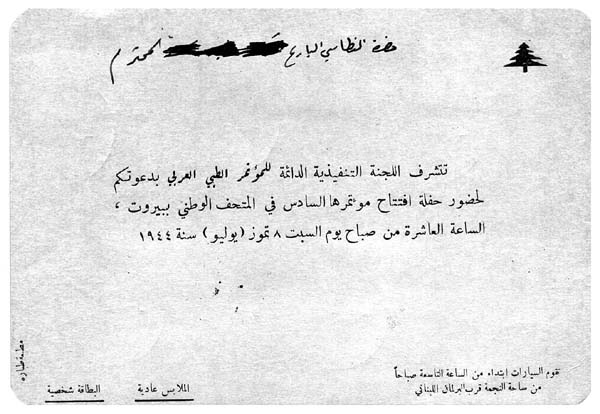 حضرة النطاسي البارع المحترم
تتشرف اللجنة التنفيذية الدائمة للمؤتمر الطبي العربي بدعوتكم
لحضور حفلة افتتاح مؤتمرها السادس في المتحف الوطني ببيروت ،
الساعة العاشرة من صباح يوم السبت ٨ تموز ( يوليو ) سنة ١٩٤٤
تقوم السيارات ابتداء من الساعة التاسعة صباحاً
من ساحة النجمة قرب البرلمان اللبناني
الملابس عادية
البطاقة شخصية
مطبعة طبارة